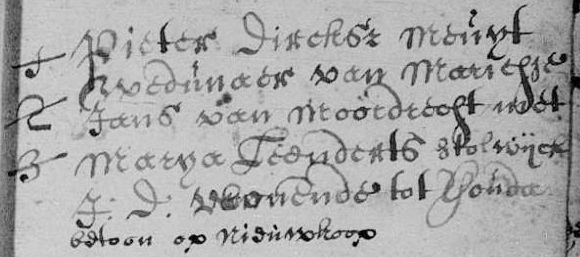 1 Pieter Dircksz Meuyt
wedunaer van Marichge
2 Jans van Moordrecht met
3 Marya Leenderts Stolwyck
J: D: wonende tot Gouda
betoon op Nieuwkoop